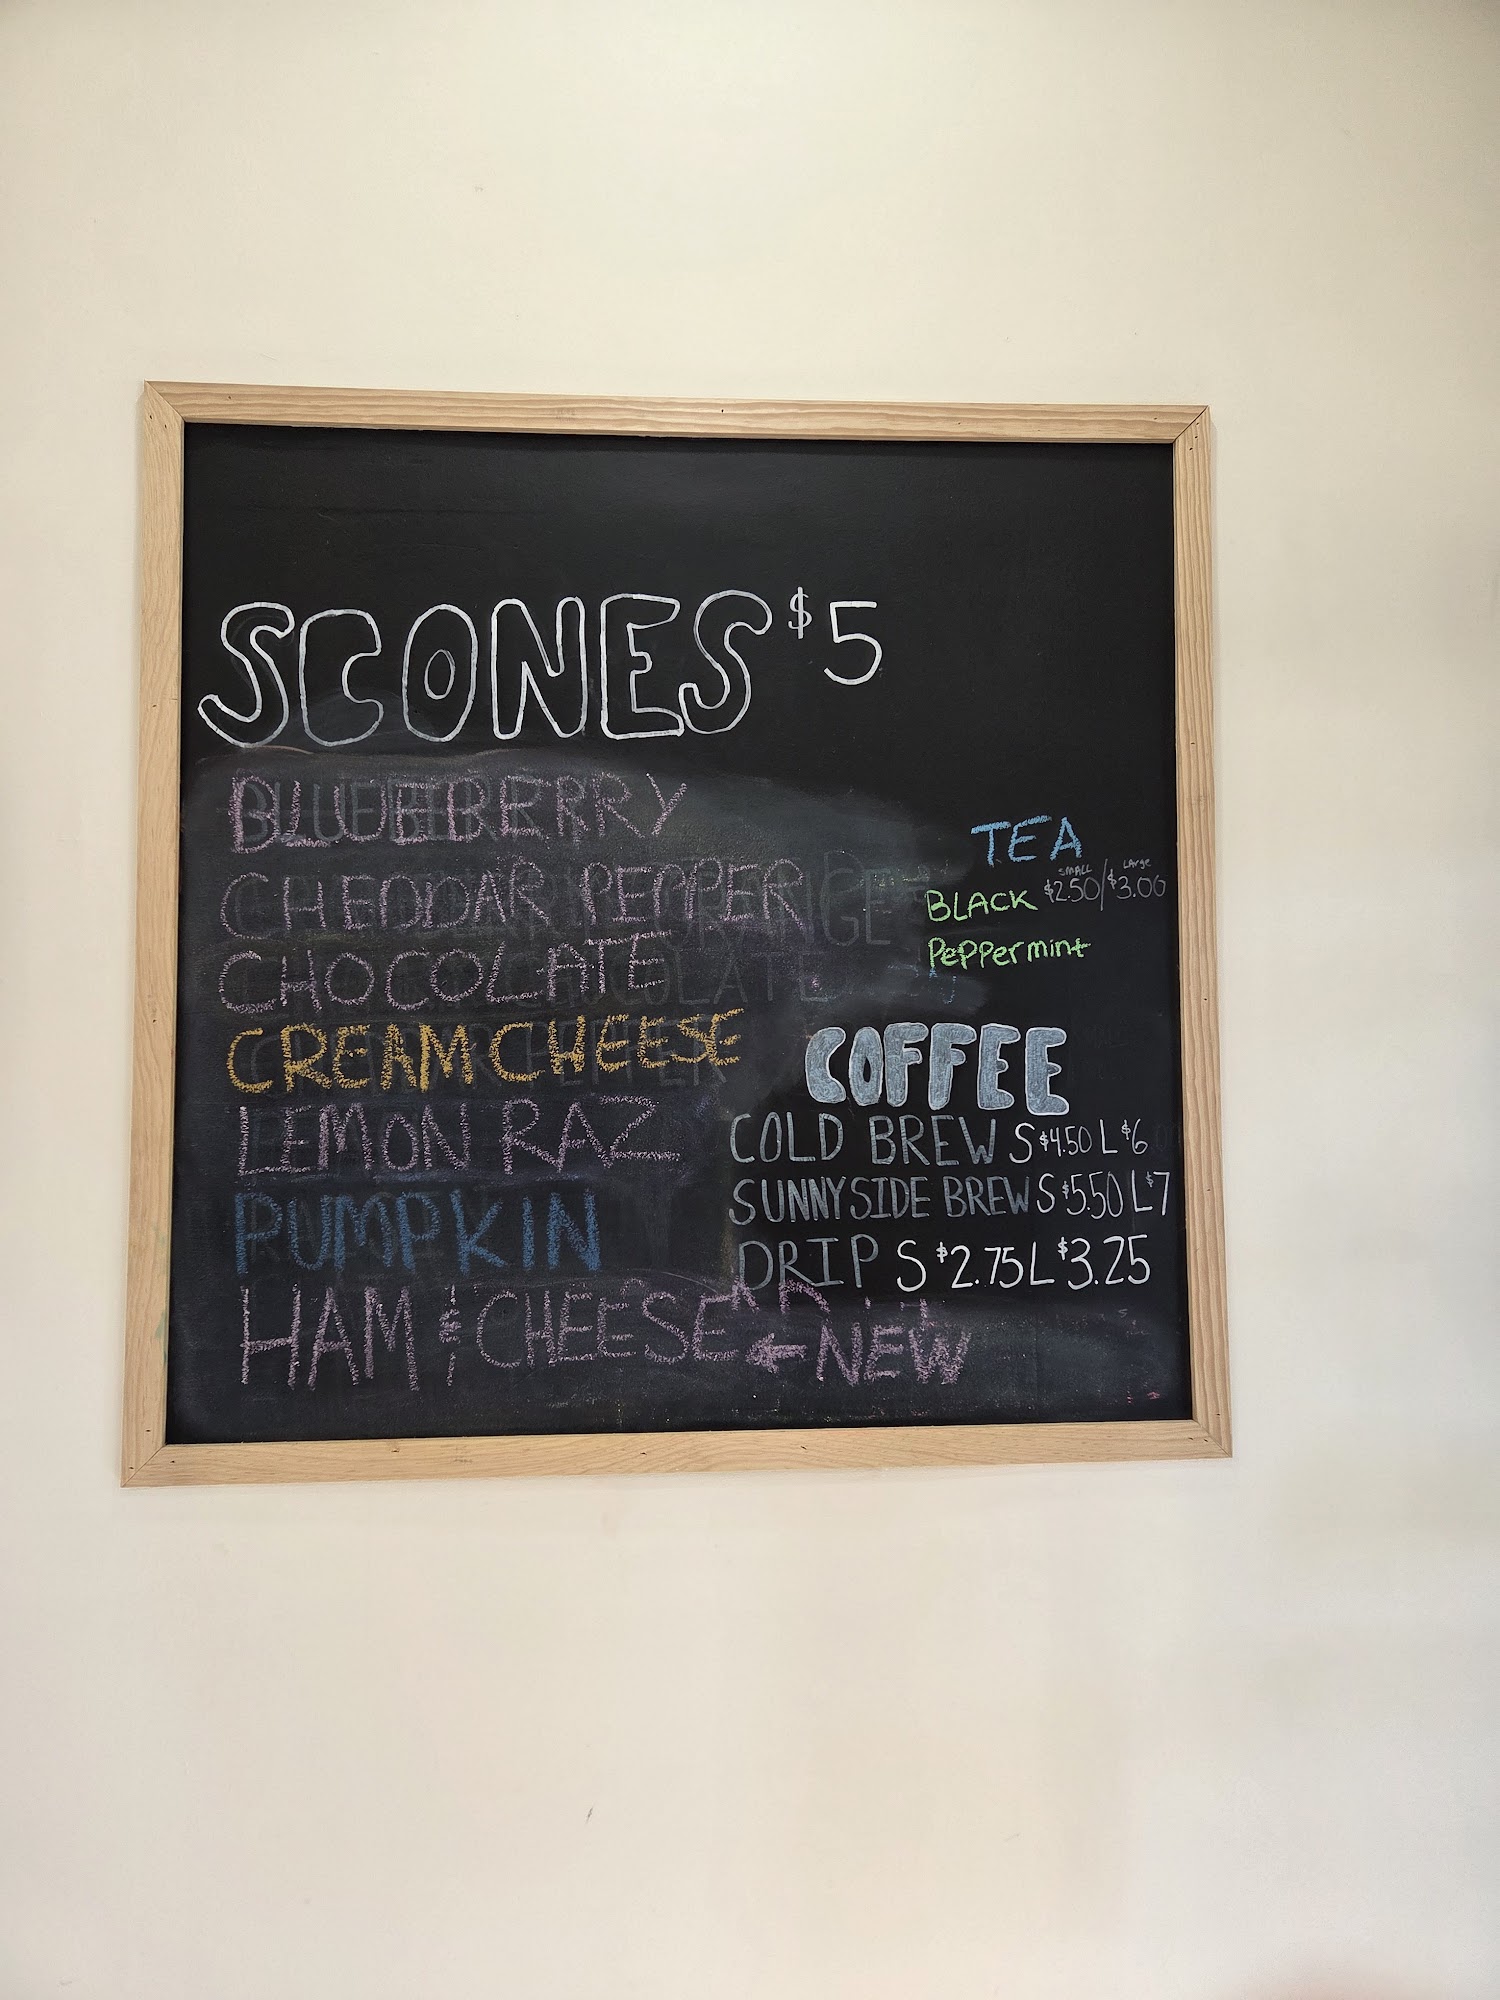 SCONES $5
BLUEBERRRY
CHEDDAR PEPPER
CHOCOLATE
CREAM CHEESE
LEMON RAZ
PUMPKIN
HAM & CHEESE ← NEW
TEA
SMALL LARGE
BLACK $2.50/$3.00
Peppermint
COFFEE
COLD BREW S $4.50 L $6
SUNNYSIDE BREW S $5.50 L $7
DRIP S $2.75 L $3.25